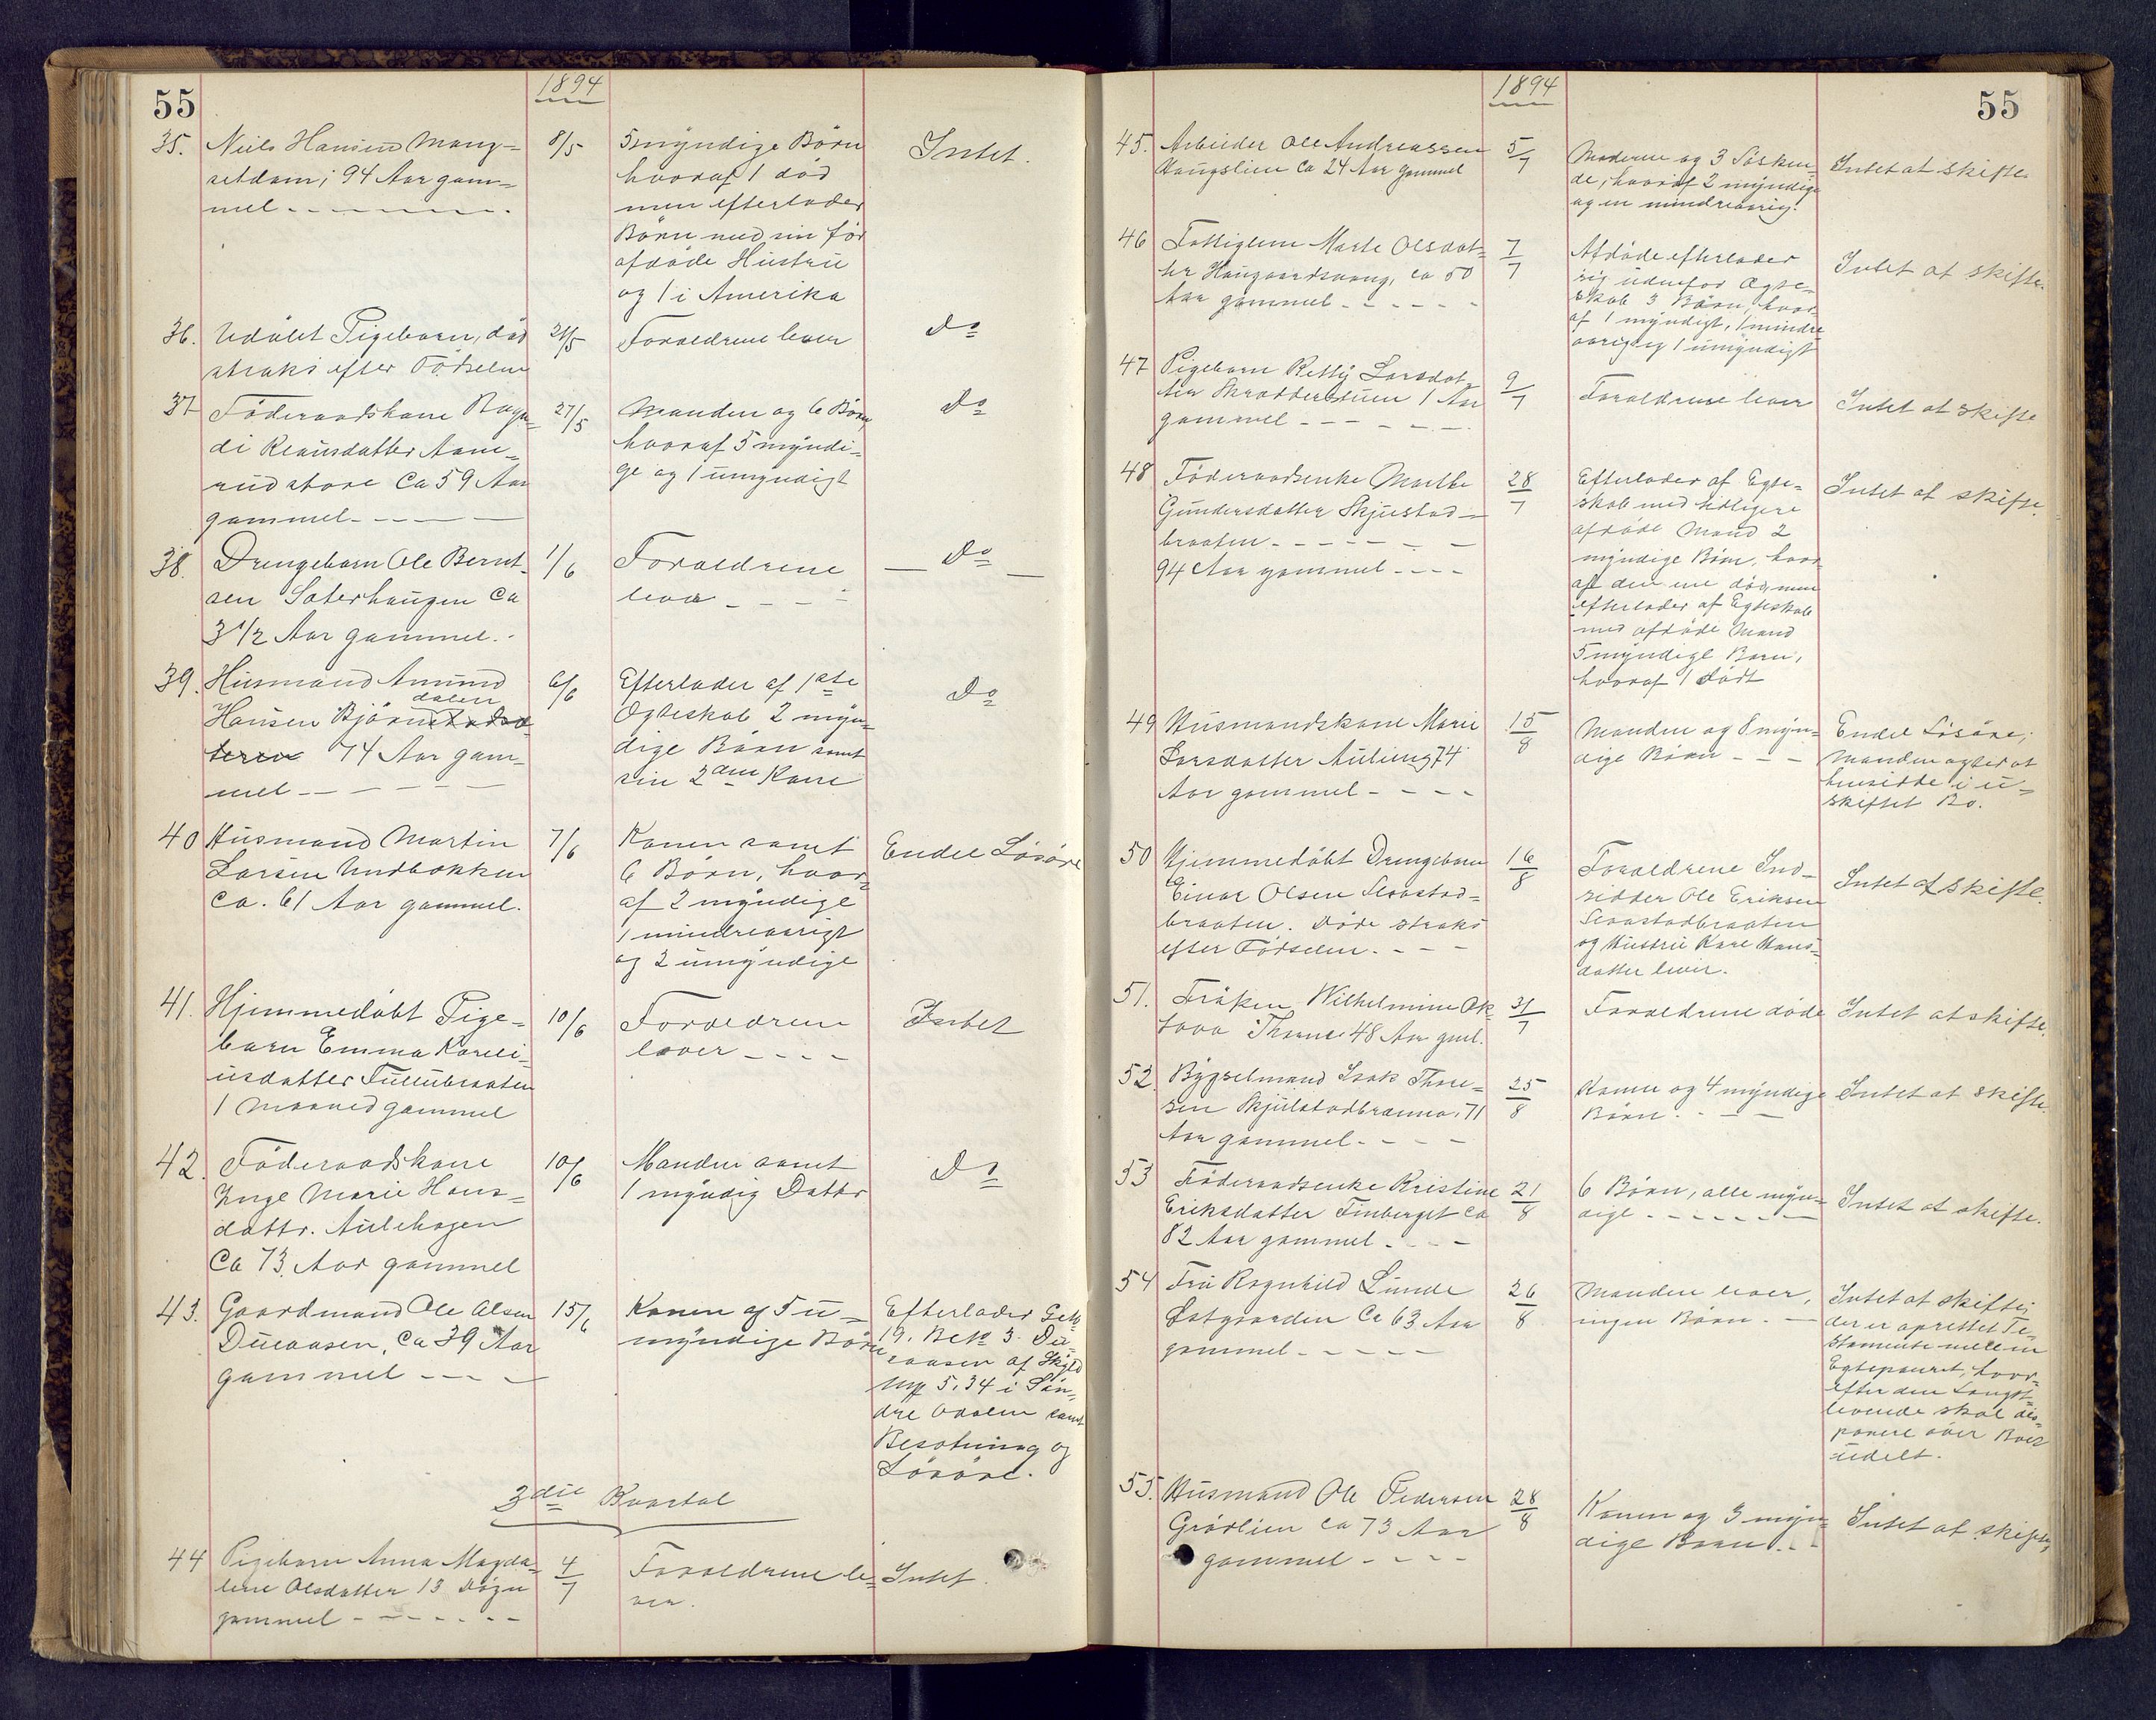 55
1894
35. Niels Hansen Mang-
setdam; 94 Aar gam-
mel
8/5
5 myndige Börn
hvoraf 1 död
men efterlader
Börn med sin för
afdöde Hustru
og 1 i Amerika
Intet.
36. Udöbt Pigebarn, död
straks efter Födselen
21/5
Foraeldrene lever
Do
37 Föderaadskone Ragn-
di Reiersdatter Aam-
rud store Ca 59 Aar
gammel
27/5
Manden og 6 Börn,
hvoraf 5 myndi-
ge og 1 umyndigt
Do
38. Drengebarn Ole Bernt-
sen Säterhaugen Ca
3 1/2 Aar gammel.
1/6
Foraeldrene
lever
Do
39. Husmand Amund
dalen
Hansen Björn
74 Aar gam-
mel
6/6
Efterlader af 1ste
Ægteskab 2 myn-
dige Börn samt
sin 2den Kone
Do
40 Husmand Martin
Larsen Undbakken
Ca. 61 Aar gammel.
7/6
Konen samt
6 Börn, hvor-
af 2 myndige
1 mindreaarigt
og 2 umyndige
Endel Lösöre
41. Hjemmedöbt Pige-
barn Emma Kareli-
usdatter Tullubraaten
1 Maaned gammel
10/6
Foraeldrene
lever
Intet
42. Föderaadskone
Inge Marie Hans-
dattr. Aulehagen
Ca 73 Aar gammel
10/6
Manden samt
1 myndig Dattr
Do
43. Gaardmand Ole Olsen
Dueaasen, Ca 39 Aar
gammel
15/6
Konen og 5 u-
myndige Börn
Efterlader Gno
19. Bno 3. Du-
eaasen af Skyld
Mrk 5,34 i Sön-
dre Odalen samt
Besætning og
Lösöre.
3die Kvartal
44 Pigebarn Anna Magda-
lene Olsdatter 13 Dögn
gammel
4/7
Foraeldrene le-
ver.
Intet.
1894
55
45. Arbeider Ole Andreassen
Haugslien Ca 24 Aar gammel
5/7
Moderen og 3 Södsken-
de; hvoraf 2 myndige
og en mindreaarig.
Intet at skifte.
46 Fattiglem Marte Olsdat-
ter Haugaardsvang, ca 50
Aar gammel
7/7
Afdöde efterlader
sig udenfor Ægte-
skab 3 Börn, hvor-
af 1 myndigt, 1 mindre
aarig og 1 umyndigt
Intet at skifte.
47 Pigebarn Betty Larsdat-
ter Skrædderstuen 1 Aar
gammel
9/7
Foraeldrene lever
Intet at skifte
48 Föderaadsenke Marthe
Gundersdatter Skjulstad-
braaten
94 Aar gammel
28/7
Efterlader af Egte-
skab med tidligere
afdöde Mand 2
myndige Börn, hvor
af den ene död, men
efterlader af Egteskab
med afdöde Mand
5 myndige Barn,
hvoraf 1 dödt
Intet at skifte.
49 Husmandskone Marie
Larsdatter Auliung 74
Aar gammel
15/8
Manden og 8 myn-
dige Börn
Endel Lösöre;
Manden agter at
hensidde i u-
skiftet Bo.
50 Hjemmedöbt Drengebarn
Einar Olsen Slaastad-
braaten. Döde straks
efter Födselen.
16/8
Foraeldrene Ind-
sidder Ole Eriksen
Slaastadbraaten
og Hustru Kare Hans-
datter lever.
Intet at skifte.
51. Fröken Wilhelmine Ok-
tava Thorne 48 Aar gml.
31/7
Foraeldrene döde
Intet at skifte.
52. Bygselmand Isak Thore-
sen Skjulstadbranna, 71
Aar gammel.
25/8
Konen og 4 myndige
Börn.
Intet at skifte.
53 Föderaadsenke Kristine
Eriksdatter Finberget Ca
82 Aar gammel.
21/8
6 Börn, alle myn-
dige
Intet at skifte.
54 Fru Ragnhild Lunde
Östgaarden Ca 63 Aar
gammel
26/8
Manden lever,
ingen Börn.
Intet at skifte;
der er oprettet Te-
stamente mellem
Egteparret, hvor-
efter den Længst-
levende skal dis-
ponere over Boet
udelt.
55. Husmand Ole Pedersen
Grödlien ca 73 Aar
gammel
28/8
Konen og 3 myn-
dige Börn.
Intet at skifte.